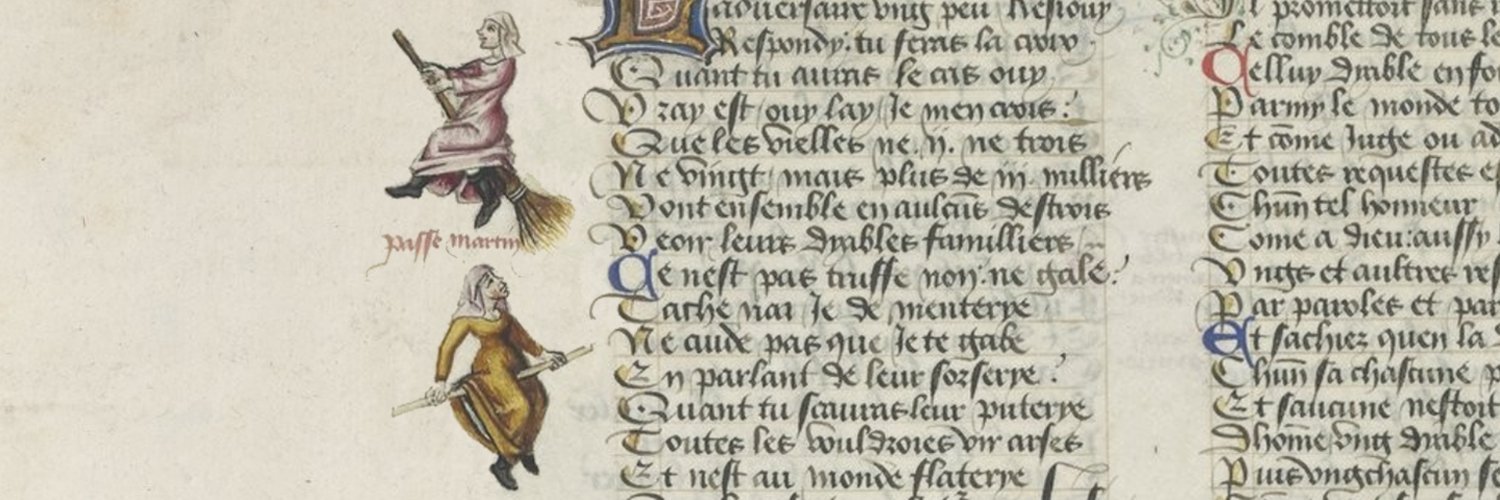 passe martin
ladversaire vng peu resiouy
Respondy: tu feras la croix
Quant tu auras le cas ouy
Vray est / ouy lay / Je men crois:
Que les vielles ne .ii. ne trois
Ne vingt / mais plus de iii. milliers
Vont ensemble en aulcuns destrois
Veoir leurs dyables familliers
Ce nest pas truffe non: ne gale:
Tache nai Je de menterye
Ne cude pas que Je te gabe
En parlant de leur sorserye:
Quant tu scauras leur puterye
Toutes les vouldroies vir arses
Et nest au monde flaterye
Il promettoit sans
Le comble de tous le
Celluy dyable en fo
Parmy le monde to
Et come Juge ou ad
Toutes requestes e
Chun tel honneur
Come a dieu: aussy
Vngs et aultres res
Par paroles et par
Et sachiez quen la
Chun sa chascune p
Et saucune nestoit
Dhome vng dyable
Puis vng chascun se